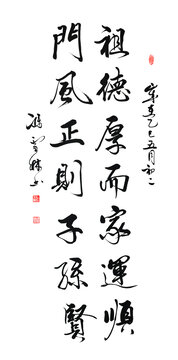 歲在乙巳五月初二
祖德厚而家運順
門風正則子孫賢